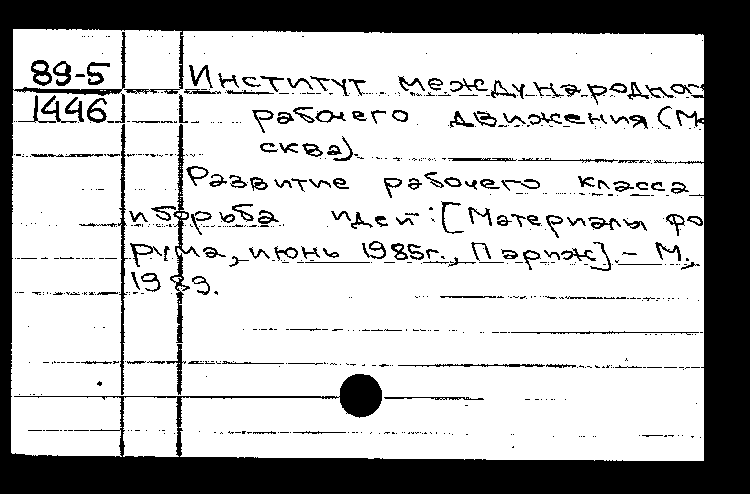 89-5
1446
Институт международног
рабочего движения (Мо
сква).
Развитие рабочего класса
и борьба идей: [Материалы фо
рума, июнь 1985г., Париж]. - М.,
1989.